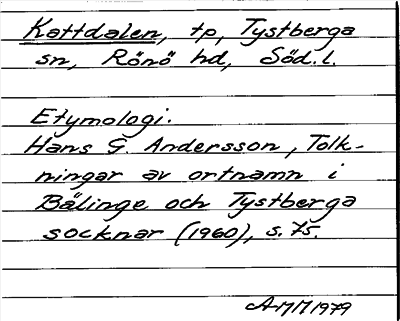 Kattdalen, tp, Tystberga
sn, Rönö hd, Söd.l.
Etymologi.
Hans G. Andersson, Tolk-
ningar av ortnamn i
Bälinge och Tystberga
socknar (1960), s. 75.
AMM 1979